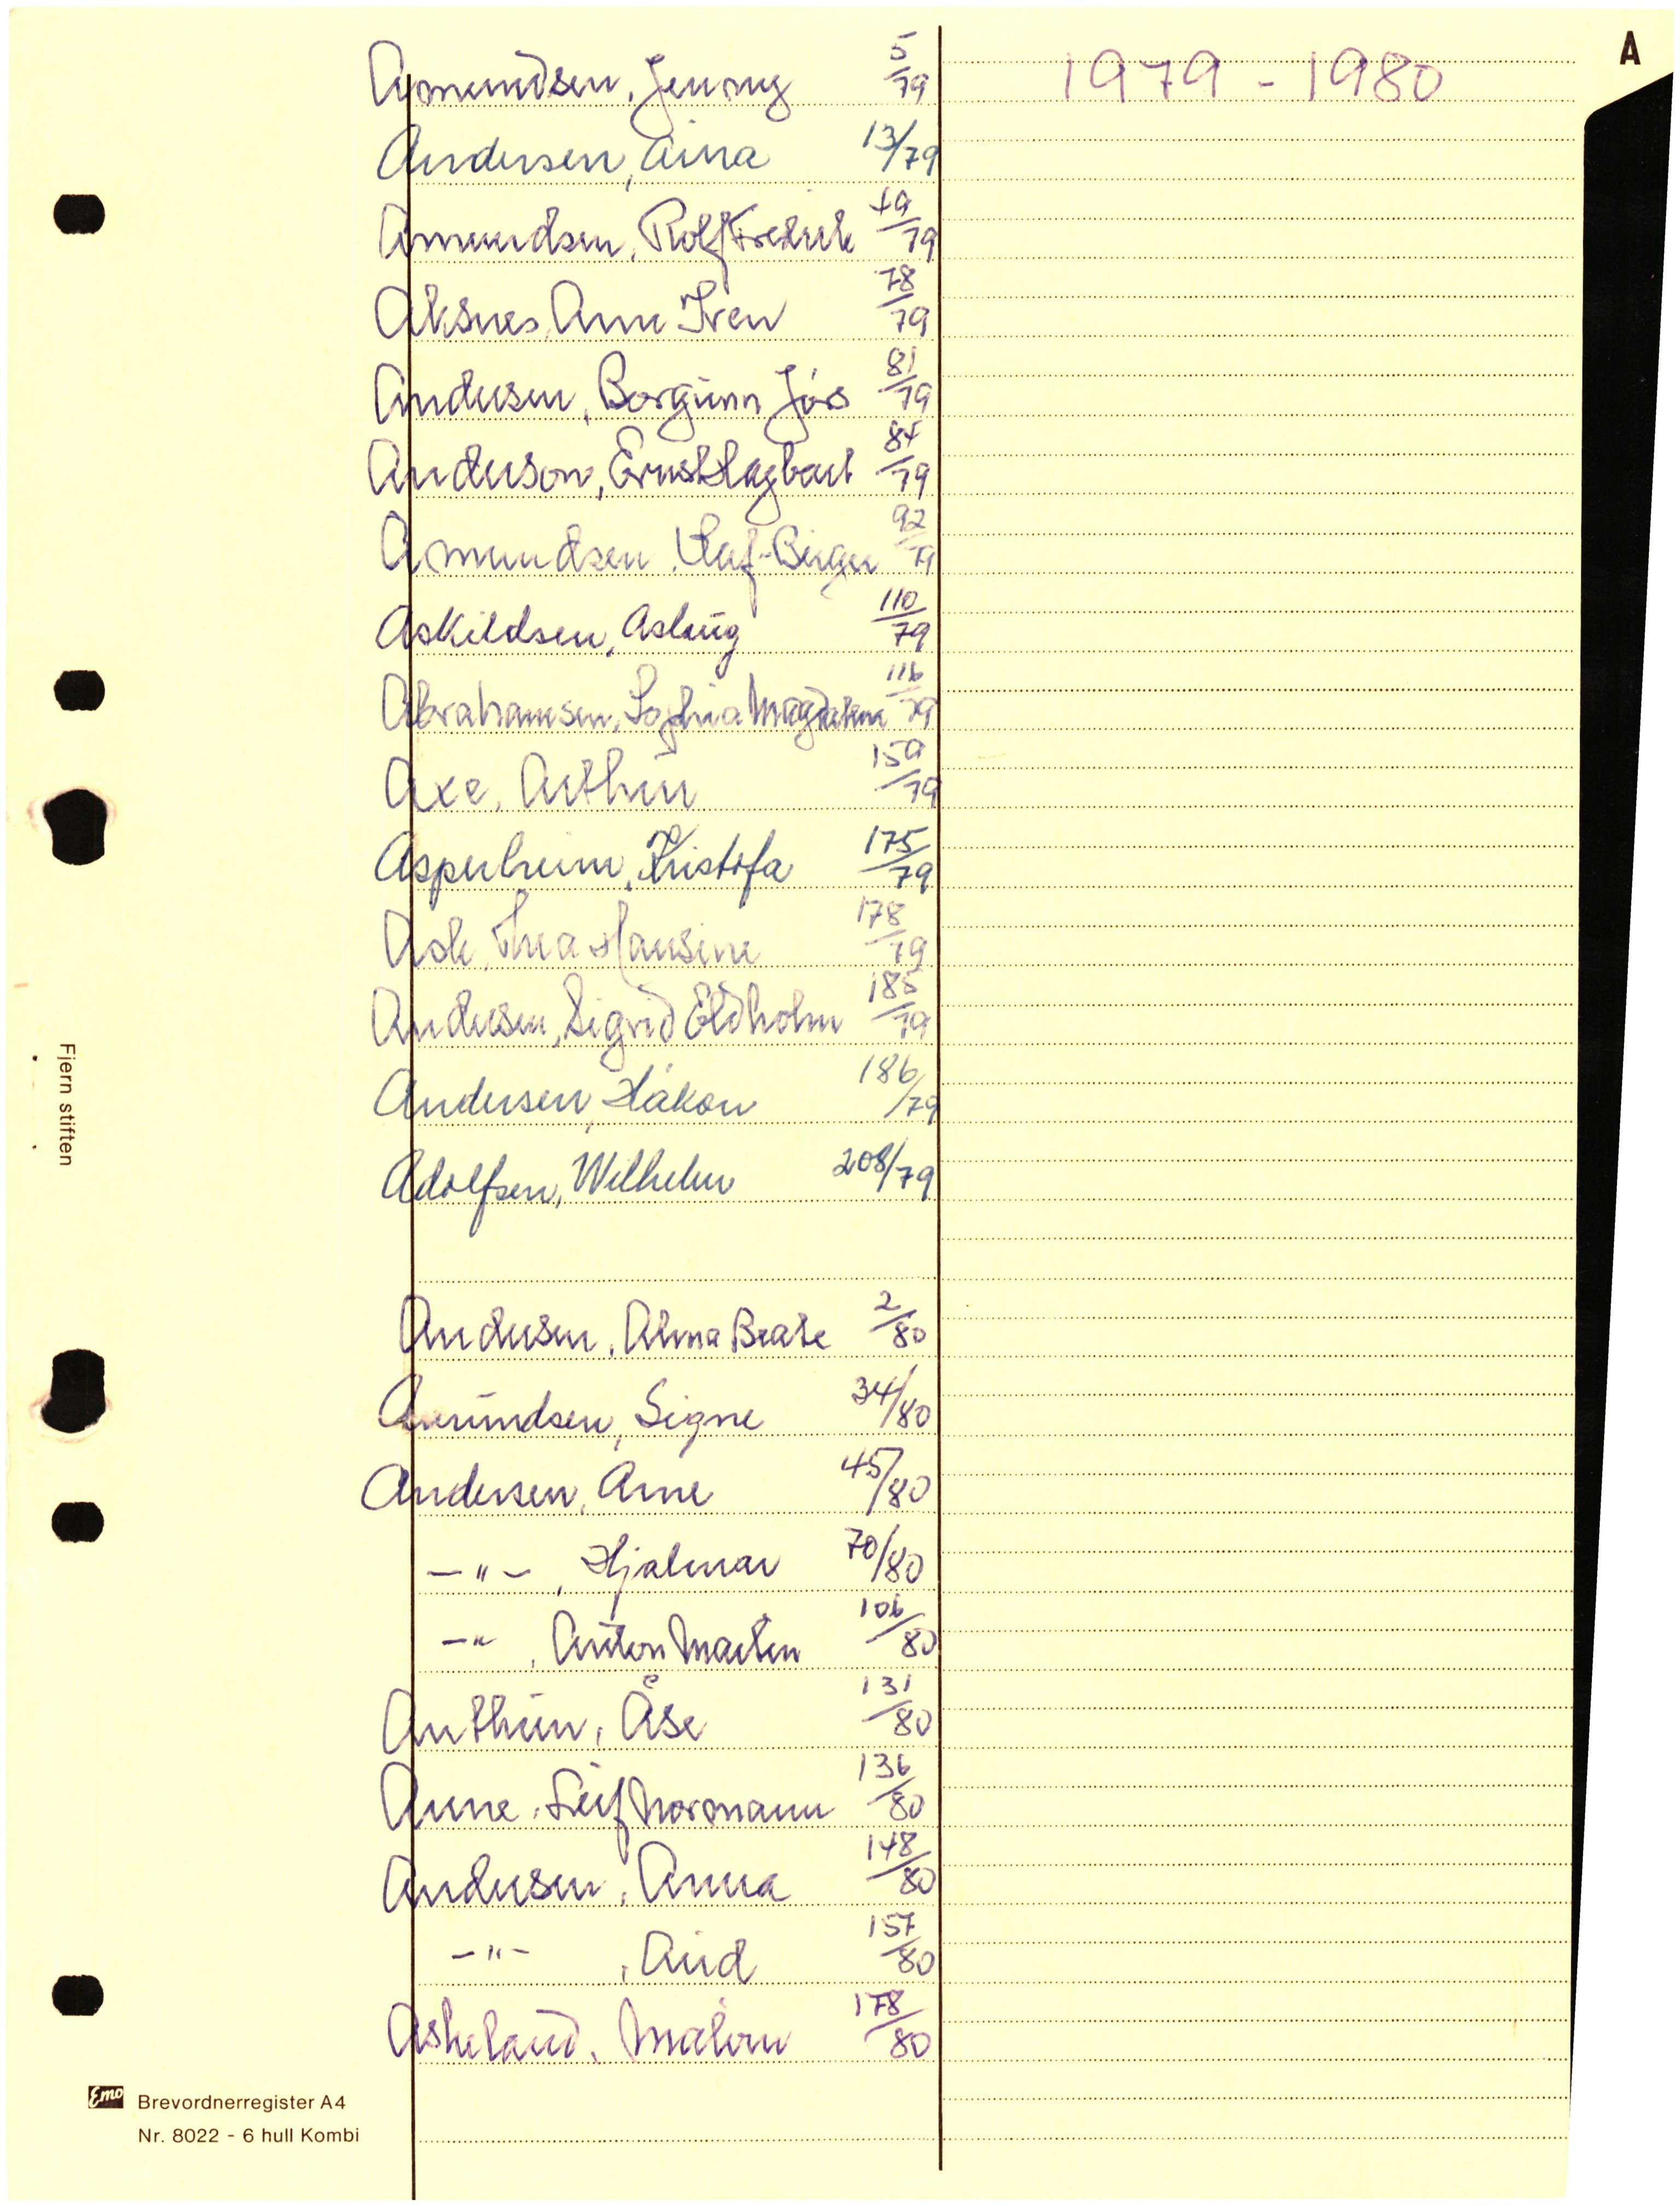 A
1979 - 1980
Amundsen, Jenny 5/79
Andersen, Aina 13/79
Amundsen, Rolf Fredrik 49/79
Aksnes, Anne Iren 78/79
Andersen, Borgunn 81/79
Anderson, Ernst Dagbart 84/79
Amundsen, Olaf-Birger 92/79
Askildsen, Aslaug 110/79
Abrahamsen, Sophia Magdalene 116/79
Axe, Arthur 159/79
Asperheim, Kristofa 175/79
Ask, Thea Hansine 178/79
Andersen, Sigrid Eldholm 185/79
Andersen, Håkon 186/79
Adolfsen, Wilhelm 208/79
Andersen, Alma Beate 2/80
Amundsen, Signe 34/80
Andersen, Arne 45/80
-"-, Hjalmar 70/80
-"-, Anton Martin 106/80
Anthun, Åse 131/80
Aune, Leif Normann 136/80
Andersen, Anna 148/80
-"-, Aud 157/80
Askeland, Malene 178/80
Fjern stiften
Emo Brevordnerregister A4
Nr. 8022 - 6 hull Kombi